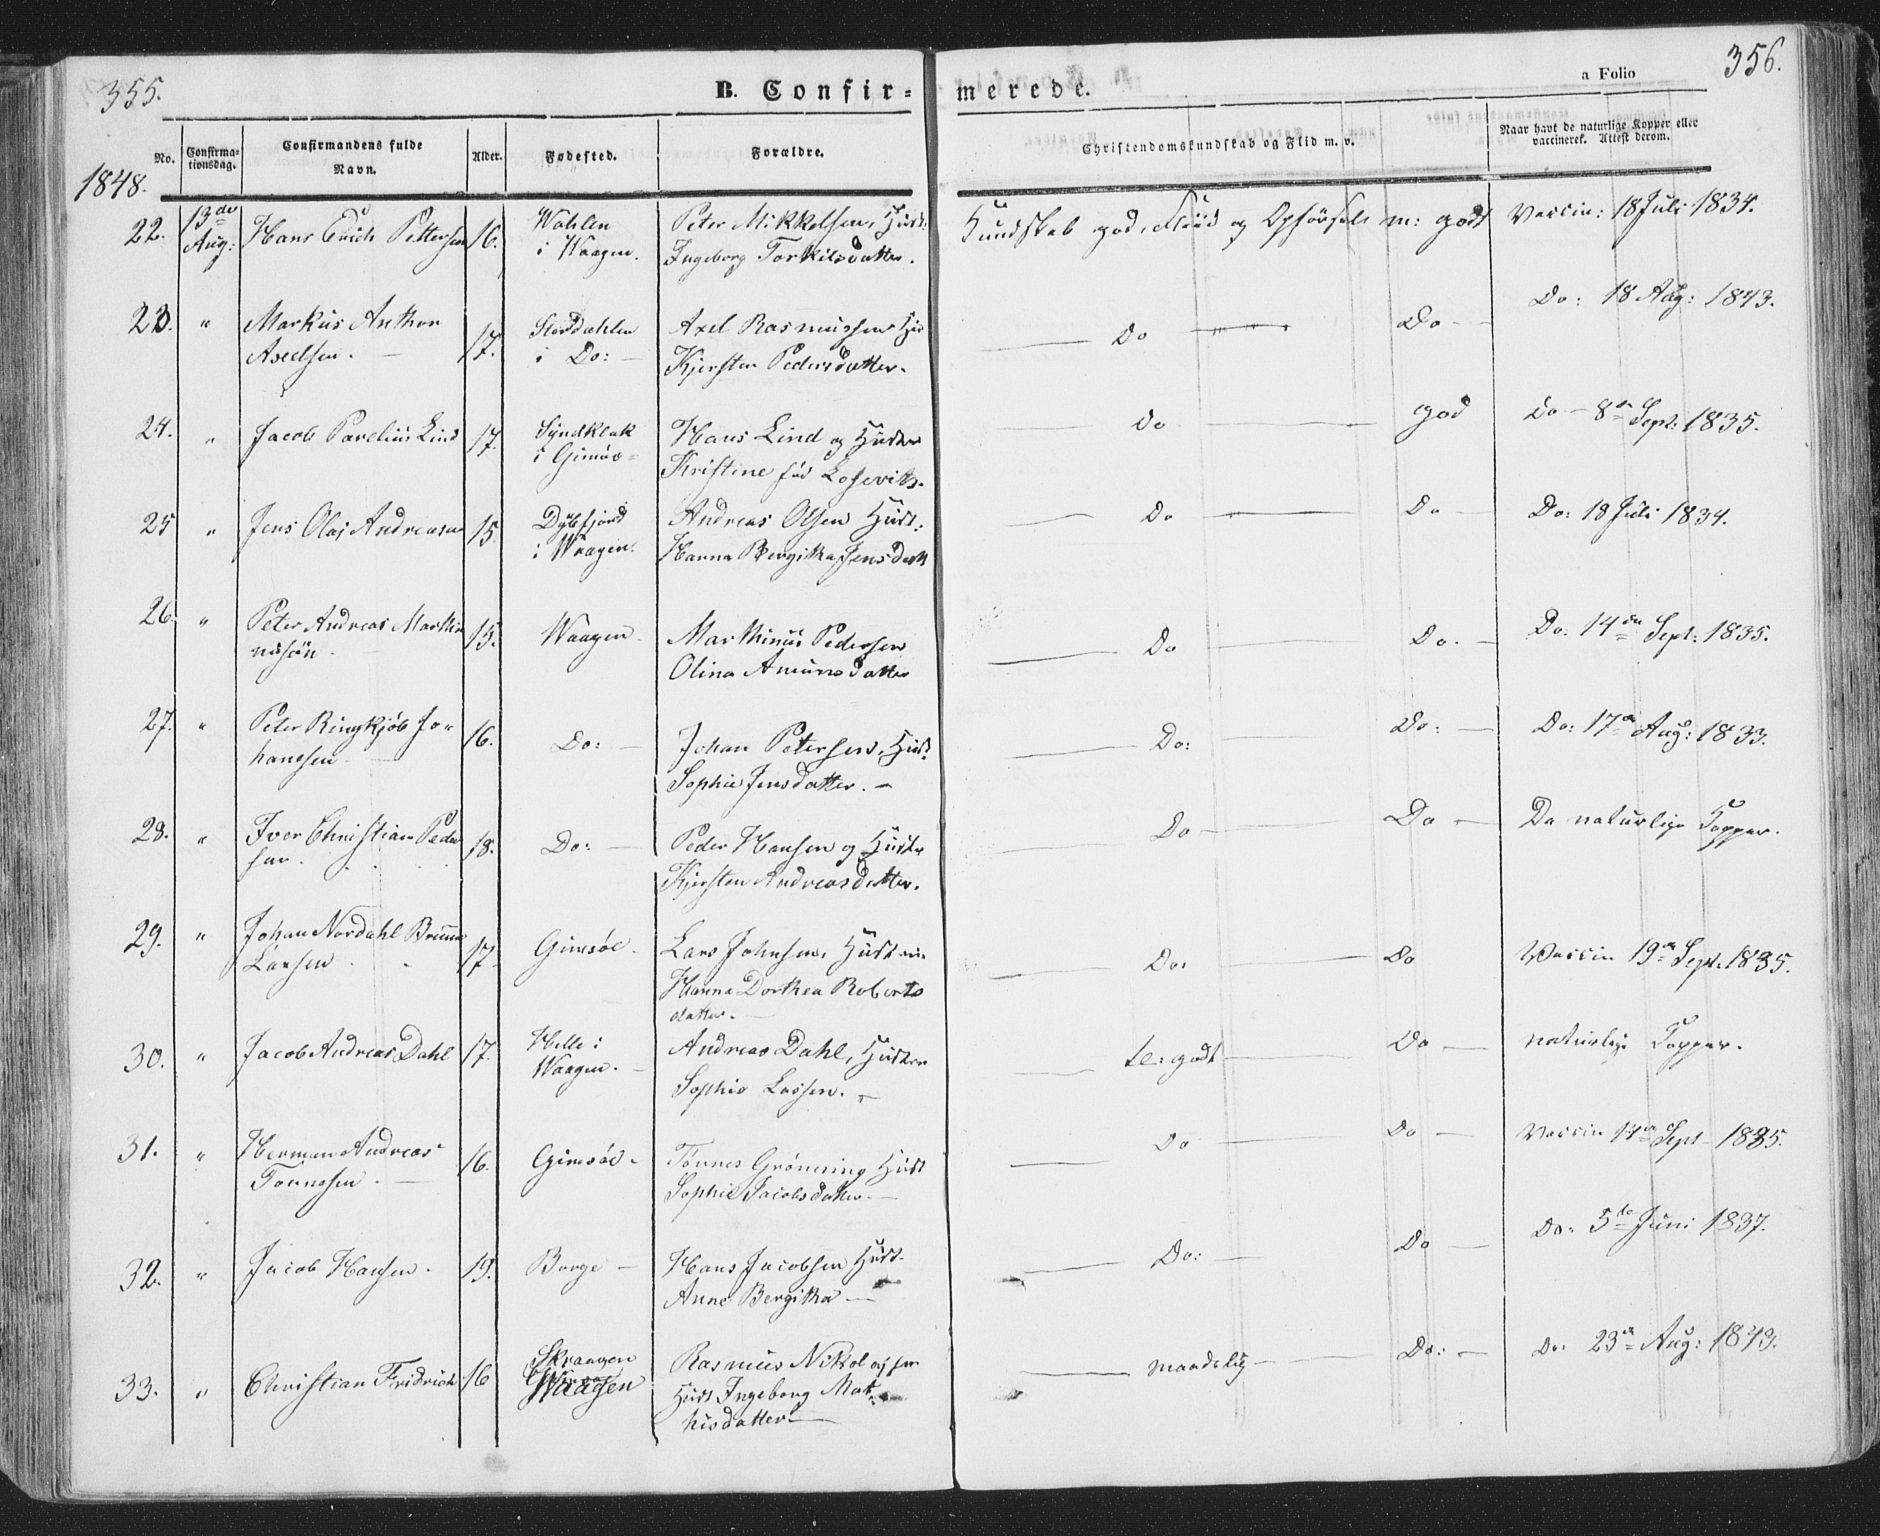 355.
B. Confir-
merede.
a Folio
356.
1848.
No.
Confirma-
tionsdag.
Confirmandens fulde
Navn.
Alder.
Fødested.
Forældre.
Christendomskundskab og Flid m. v.
Naar havt de naturlige Kopper eller
vaccineret. Attest derom.
22. 13de Aug: Hans Erich Pettersen 16.
Wahlen
i Waagen.
Peter Mikkelsen, Hust:
Ingeborg Torkilsdatter.
Kundskab god, Fliid og Opförsel m: godt
Vaccin: 18 Juli 1834.
23. " Markus Anthon
Axelsen. 17.
Stordahlen
i Do:
Axel Rasmussen
Kjersten Pedersdatter.
Do Do
Do: 18 Aug: 1843.
24. " Jacob Parelius Lind 17.
Syndklak
i Gimsö
Hans Lind og Hustru
Kristine föd
Do god
Do 8de Sept: 1835.
25 " Jens Olaj Andreasen 15.
Dybfjord
i Waagen.
Andreas Olsen Hust:
Hanna Bergitha Jensdatt
Do Do
Do: 18 Juli 1834.
26. " Peter Andreas Marthi
nusön. 15.
Waagen
Marthinus Pedersen
Olina Amunsdatter
Do Do.
Do: 14de Sept: 1835.
27. " Peter Ringkjöb Jo-
hansen. 16.
Do:
Johan Petersen, Hust
Sophie Jensdatter.
Do: Do:
Do: 17de Aug: 1833.
28. " Iver Christian Peder
sen. 18.
Do:
Peder Hansen og Hustr
Kjersten Andreasdatter.
Do Do
De naturlige Kopper.
29. " Johan Nordahl
Larsen 17
Gimsöe
Lars Johnsen, Hustru
Hanna Dorthea Roberts
datter.
Do: Do
Vaccin 19de Sept: 1835.
30. " Jacob Andreas Dahl 17.
Helle i
Waagen.
Andreas Dahl, Hustru
Sophie Lassen.
te: godt Do
naturlige Kopper.
31. " Herman Andreas
Tonnesen. 16.
Gimsöe
Tønnes Grönning Hust
Sophie Jacobsdatter.
Do Do
Vaccin 14de Sept 1835.
32. " Jacob Hansen. 19.
Borge
Hans Jacobsen Hust.
Anne Bergitha
Do: Do
Do: 5te Juni 1837.
33. " Christian Fridrich 16
Skraagen
Waagen
Rasmus Nikolajsen
Hust Ingeborg Mat-
hisdatter
maadelig Do:
Do: 23de Aug: 1843.